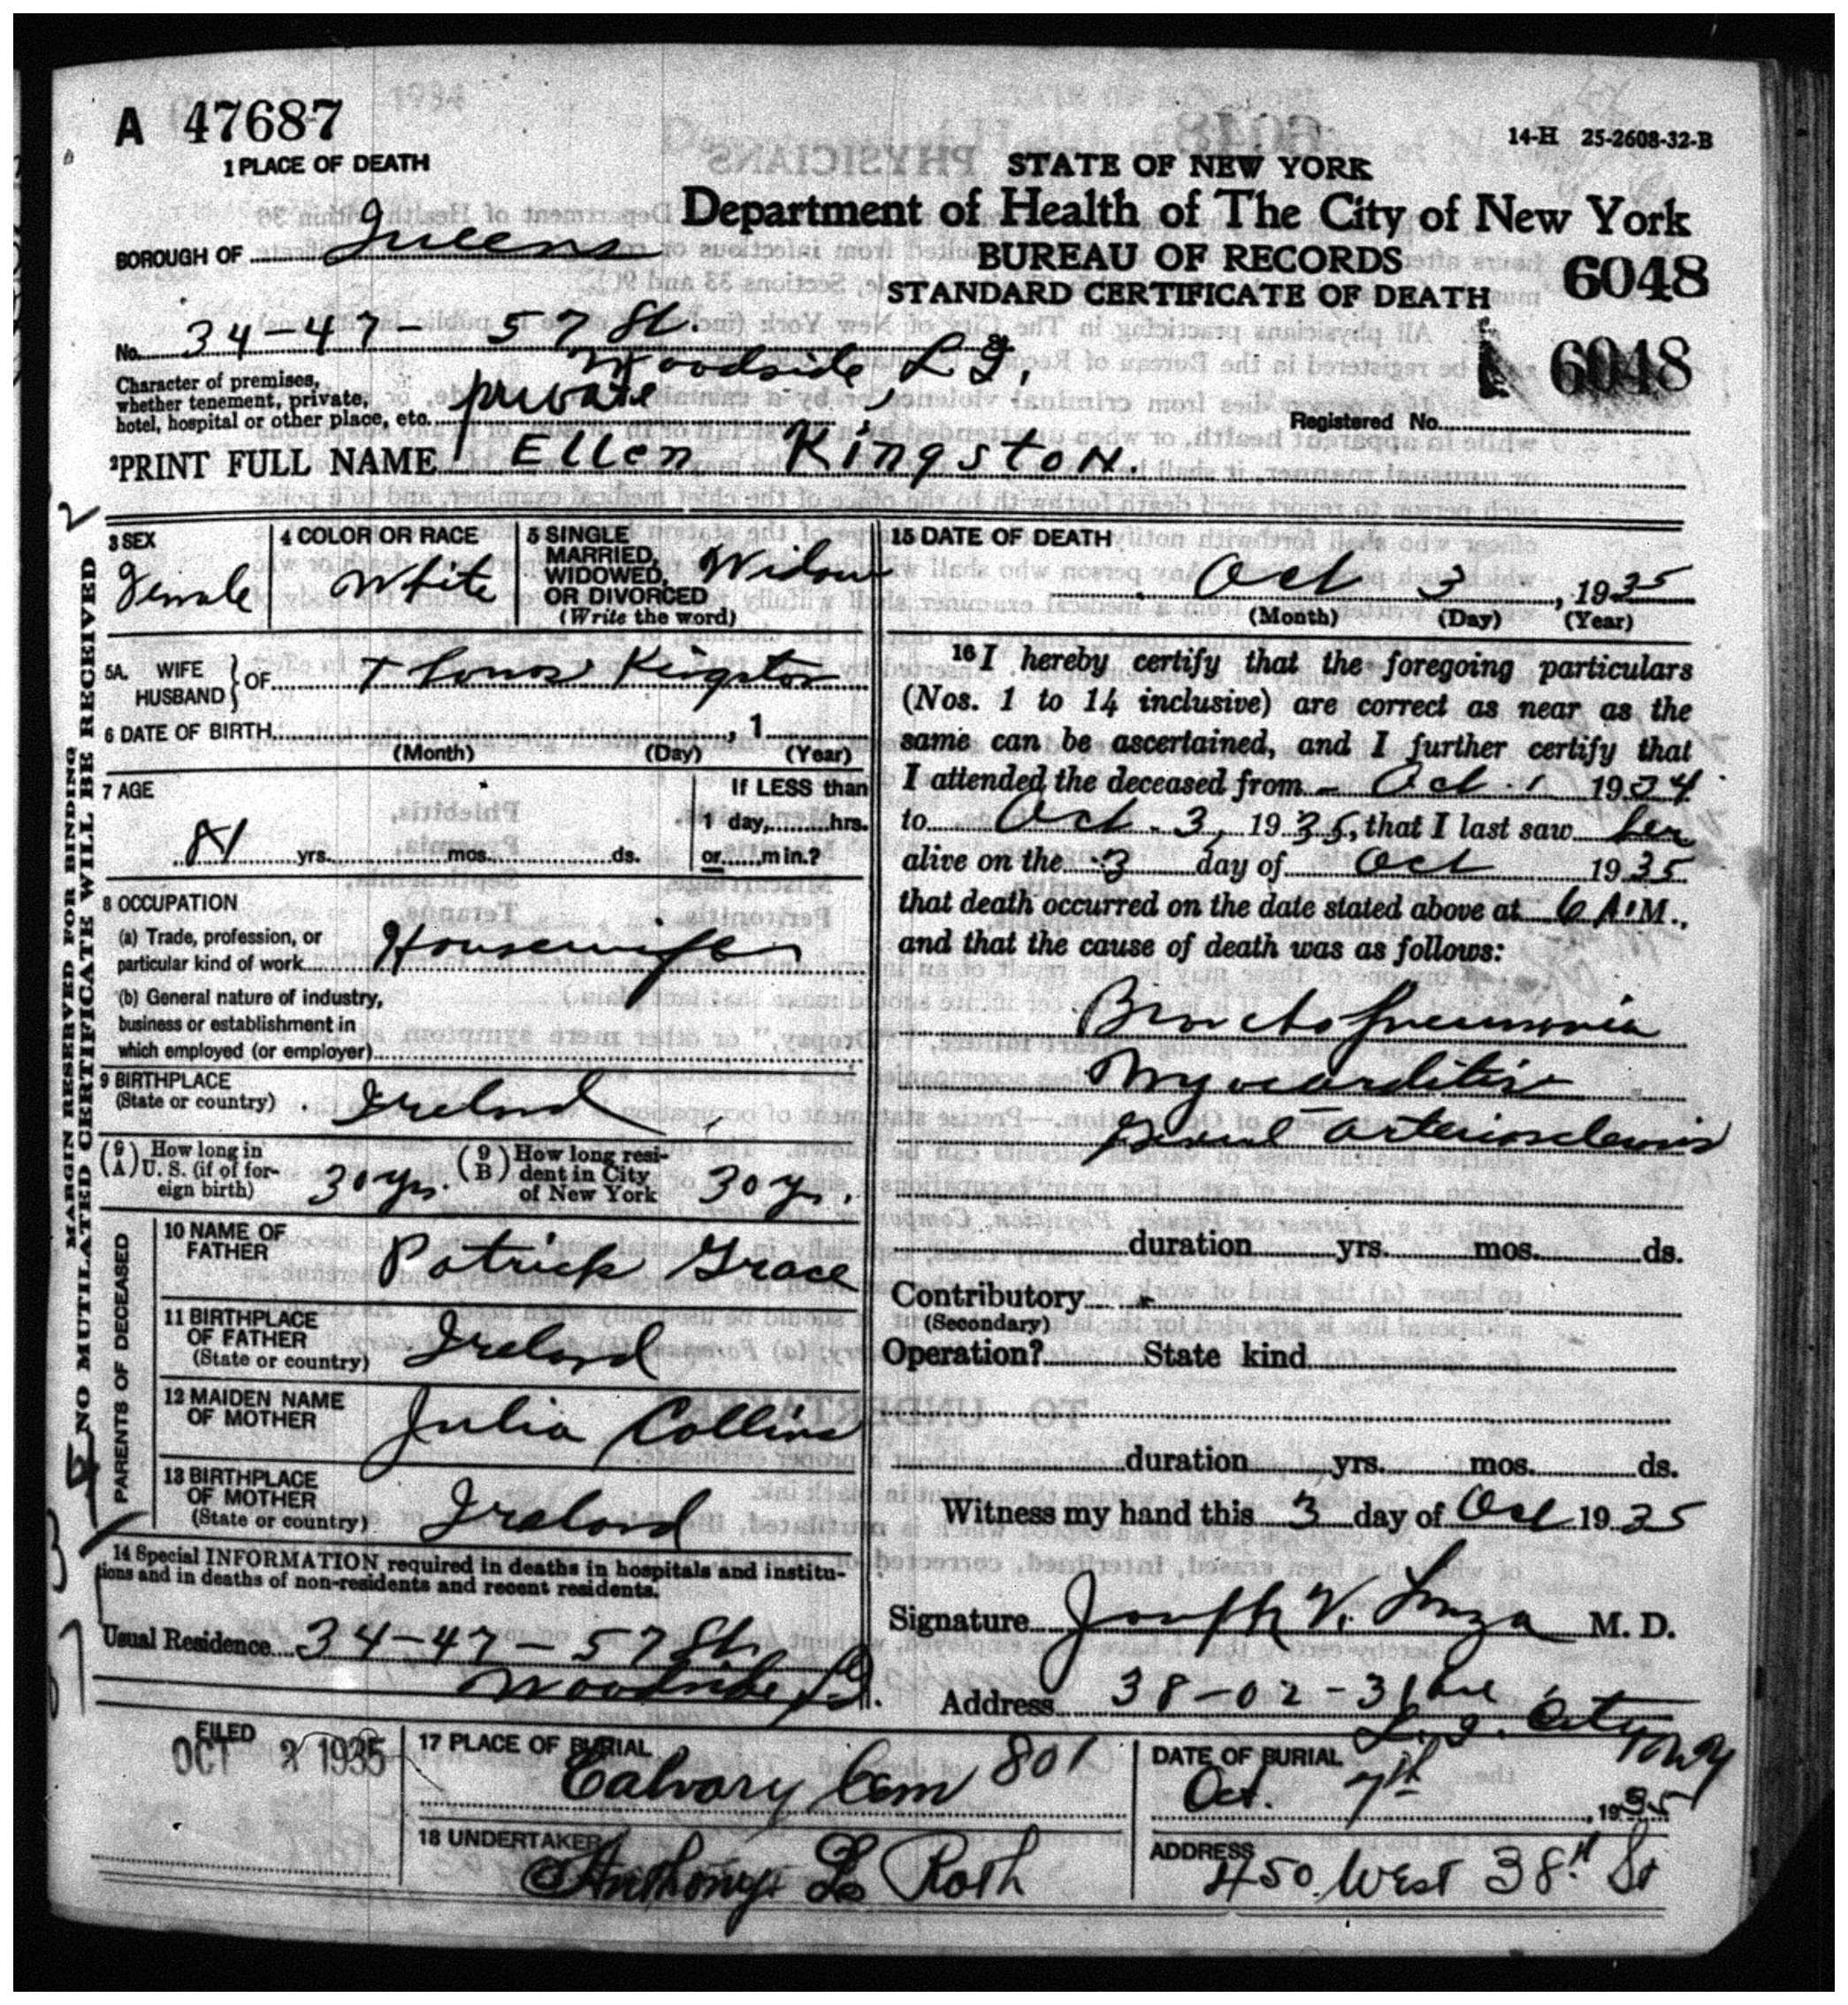 A 47687
14-H 25-2608-32-B
1 PLACE OF DEATH
STATE OF NEW YORK
Department of Health of The City of New York
BUREAU OF RECORDS
STANDARD CERTIFICATE OF DEATH
6048
6048
Registered No.
BOROUGH OF Queens
No. 34-47- 57 St.
Woodside, L I,
Character of premises,
whether tenement, private,
hotel, hospital or other place, etc. private
2 PRINT FULL NAME Ellen Kingston.
MARGIN RESERVED FOR BINDING
NO MUTILATED CERTIFICATE WILL BE RECEIVED
3 SEX
Female
4 COLOR OR RACE
White
5 SINGLE
MARRIED,
WIDOWED,
OR DIVORCED
(Write the word)
Widow
5A. WIFE
HUSBAND } OF Thomas Kingston
6 DATE OF BIRTH , 1
(Month) (Day) (Year)
7 AGE
81 yrs. mos. ds.
If LESS than
1 day, hrs.
or min.?
8 OCCUPATION
(a) Trade, profession, or
particular kind of work Housewife
(b) General nature of industry,
business or establishment in
which employed (or employer)
9 BIRTHPLACE
(State or country) Ireland
(9 A) How long in
U. S. (if of for-
eign birth) 30 yrs.
(9 B) How long resi-
dent in City
of New York 30 yr.
PARENTS OF DECEASED
10 NAME OF
FATHER Patrick Grace
11 BIRTHPLACE
OF FATHER
(State or country) Ireland
12 MAIDEN NAME
OF MOTHER Julia Collins
13 BIRTHPLACE
OF MOTHER
(State or country) Ireland
14 Special INFORMATION required in deaths in hospitals and institu-
tions and in deaths of non-residents and recent residents.
Usual Residence 34-47-57 St.
Woodside L.I.
15 DATE OF DEATH
Oct 3, 1935
(Month) (Day) (Year)
16 I hereby certify that the foregoing particulars
(Nos. 1 to 14 inclusive) are correct as near as the
same can be ascertained, and I further certify that
I attended the deceased from Oct. 1 1934
to Oct. 3, 1935, that I last saw her
alive on the 3 day of Oct 1935
that death occurred on the date stated above at 6 A.M.,
and that the cause of death was as follows:
Bronchopneumonia
Myocarditis
general arteriosclerosis
duration yrs. mos. ds.
Contributory
(Secondary)
Operation? State kind
duration yrs. mos. ds.
Witness my hand this 3 day of Oct 1935
Signature Joseph V. M. D.
Address 38-02-31 Ave
L. I. City N Y
FILED
OCT 1935
17 PLACE OF BURIAL
Calvary Cem 801
DATE OF BURIAL
Oct. 7th, 1935
18 UNDERTAKER
Anthony Roth
ADDRESS
450 West 38th St